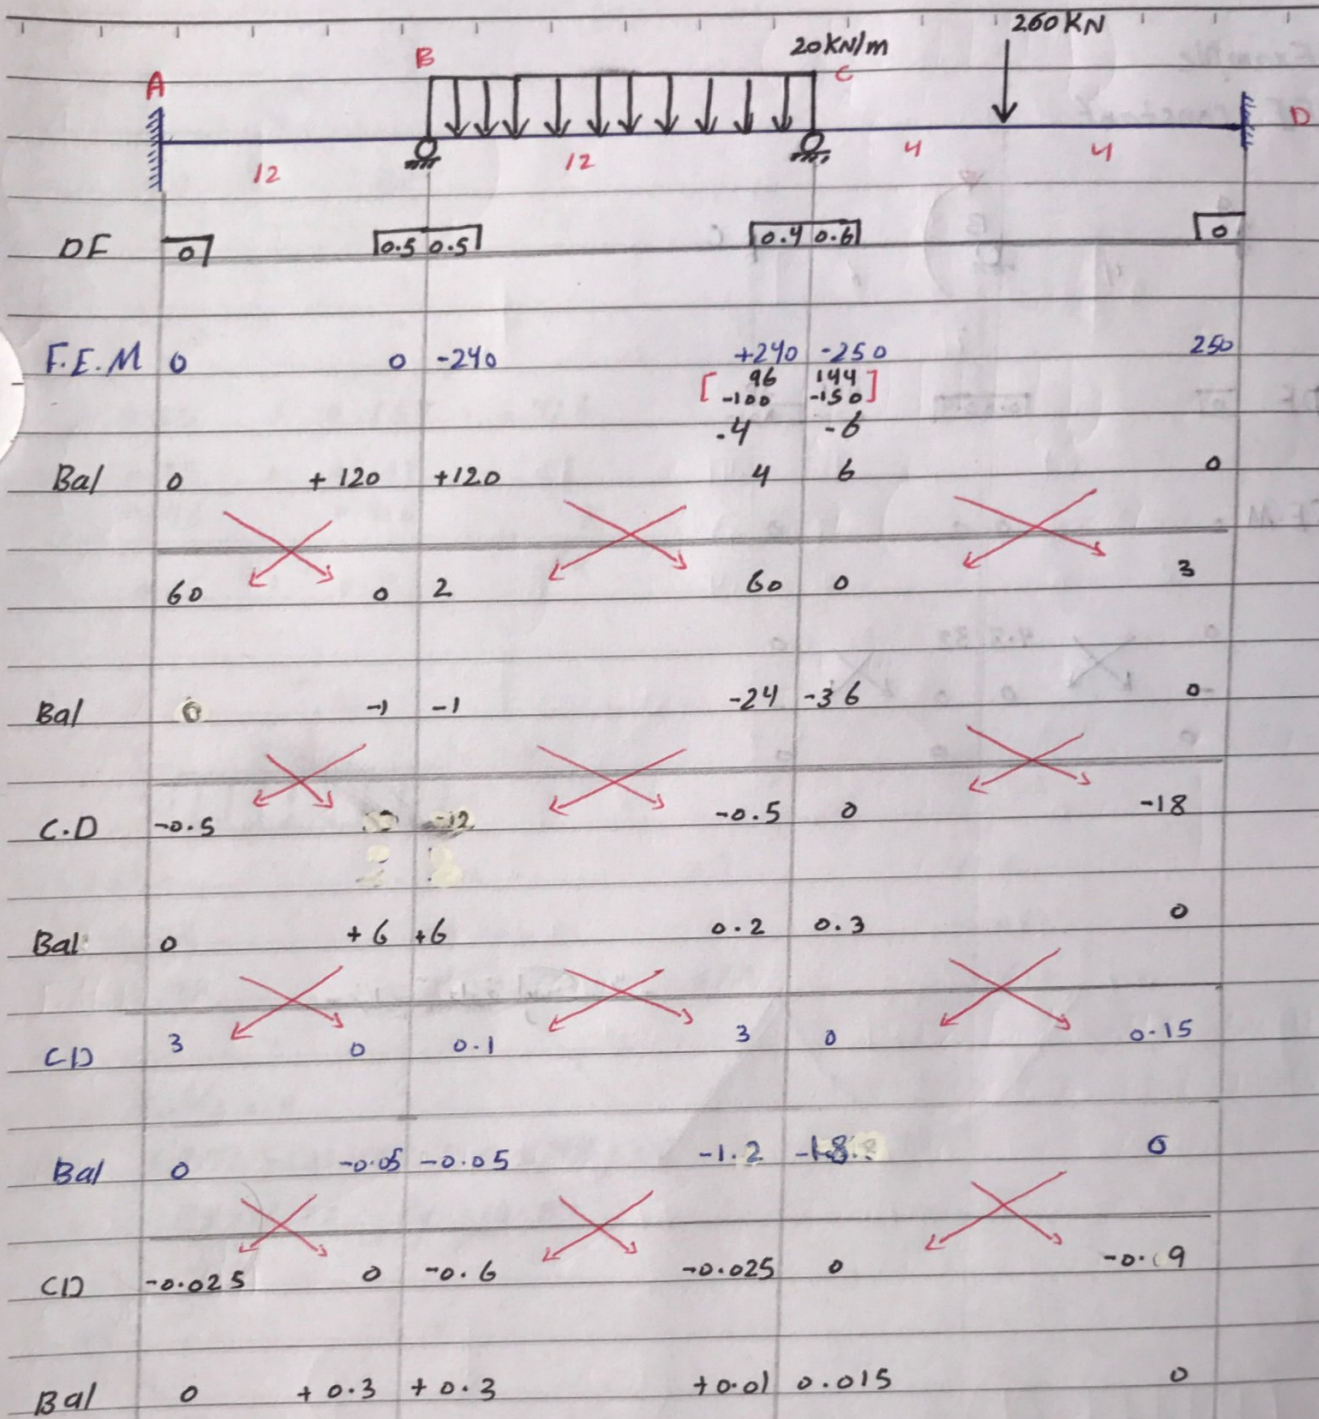 260 KN
B 20KN/m C
A D
12 12 4 4
DF 0 0.5 0.5 0.4 0.6 0
F.E.M 0 0 -240 +240 -250 250
[ 96 144 ]
[ -100 -150 ]
-4 -6
Bal 0 +120 +120 4 6 0
60 0 2 60 0 3
Bal 0 -1 -1 -24 -36 0
C.D -0.5 -12 -0.5 0 -18
Bal 0 +6 +6 0.2 0.3 0
CD 3 0 0.1 3 0 0.15
Bal 0 -0.05 -0.05 -1.2 -1.8 0
CD -0.025 0 -0.6 -0.025 0 -0.9
Bal 0 +0.3 +0.3 +0.01 0.015 0